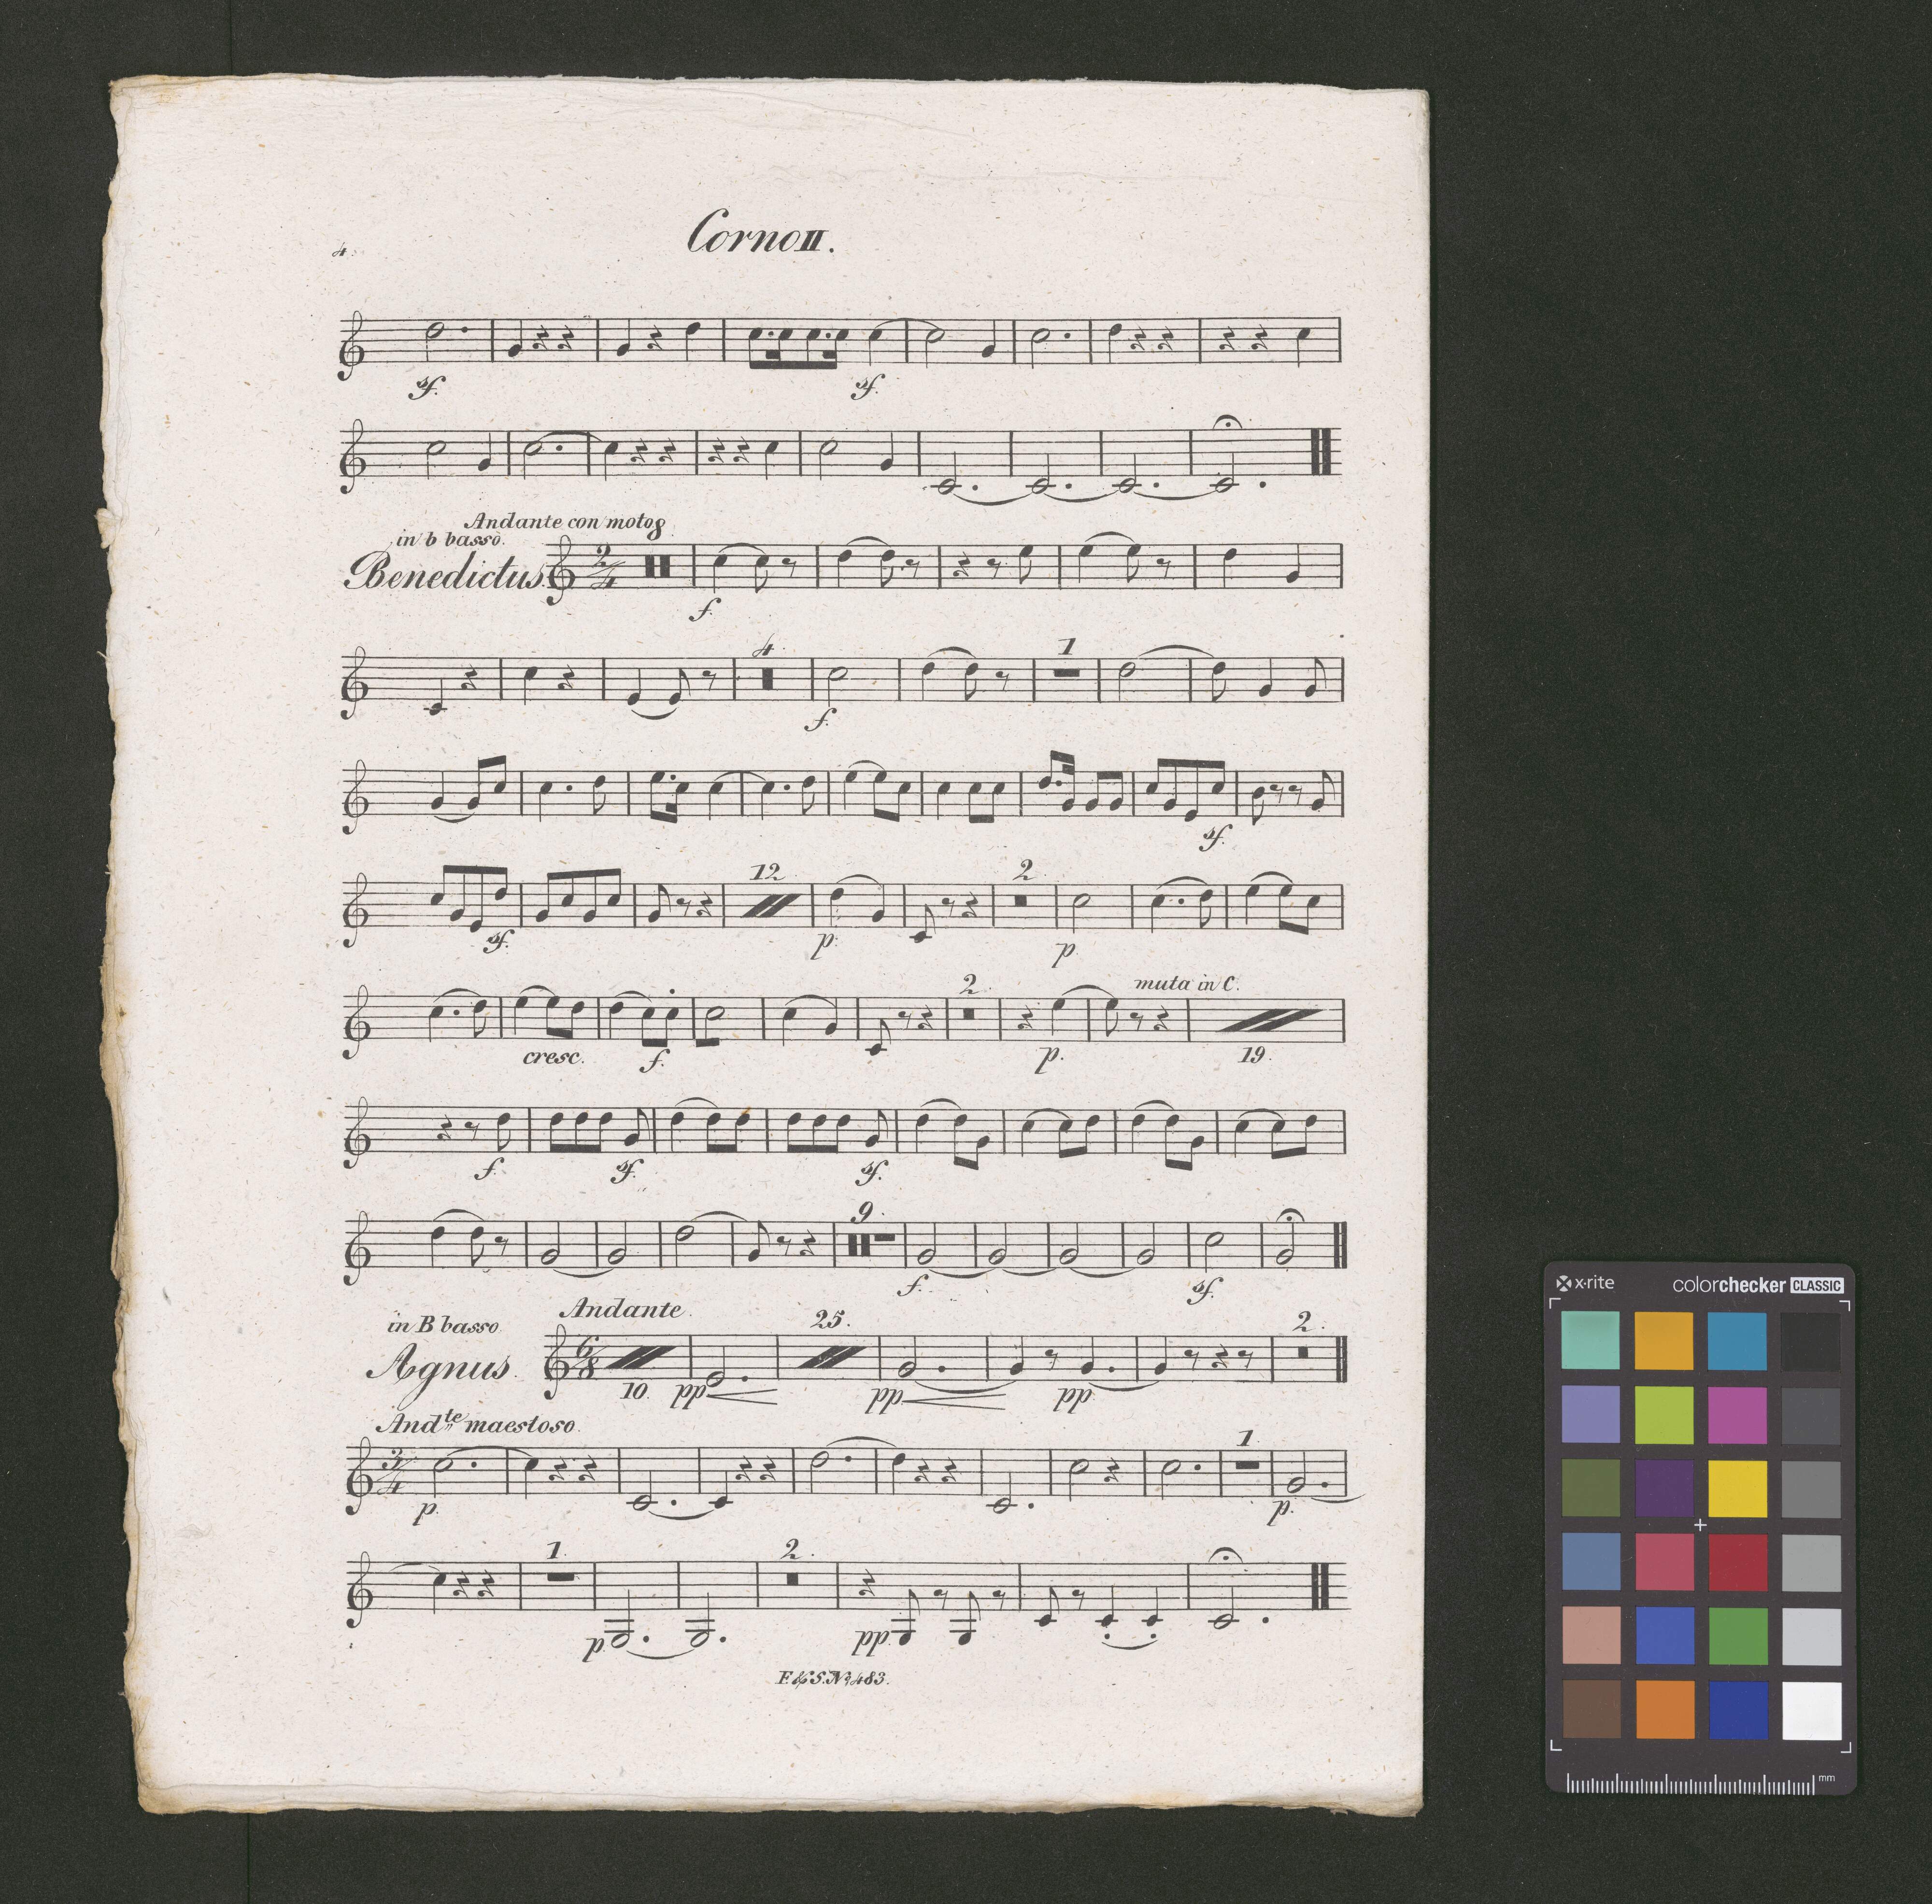 4.
Corno II.
sf. sf.
Andante con moto 8
in b basso.
Benedictus. 2/4
f.
4. 1
f.
sf.
12. 2.
sf. p. p.
2. muta in C.
cresc. f. p. 19.
f. sf. sf.
9.
f. sf.
in B basso Andante. 25. 2.
Agnus. 6/8
10. pp pp pp
And.te maestoso.
3/4 1.
p. p.
1. 2.
p pp
F. & S. No. 483.
x·rite colorchecker CLASSIC
mm